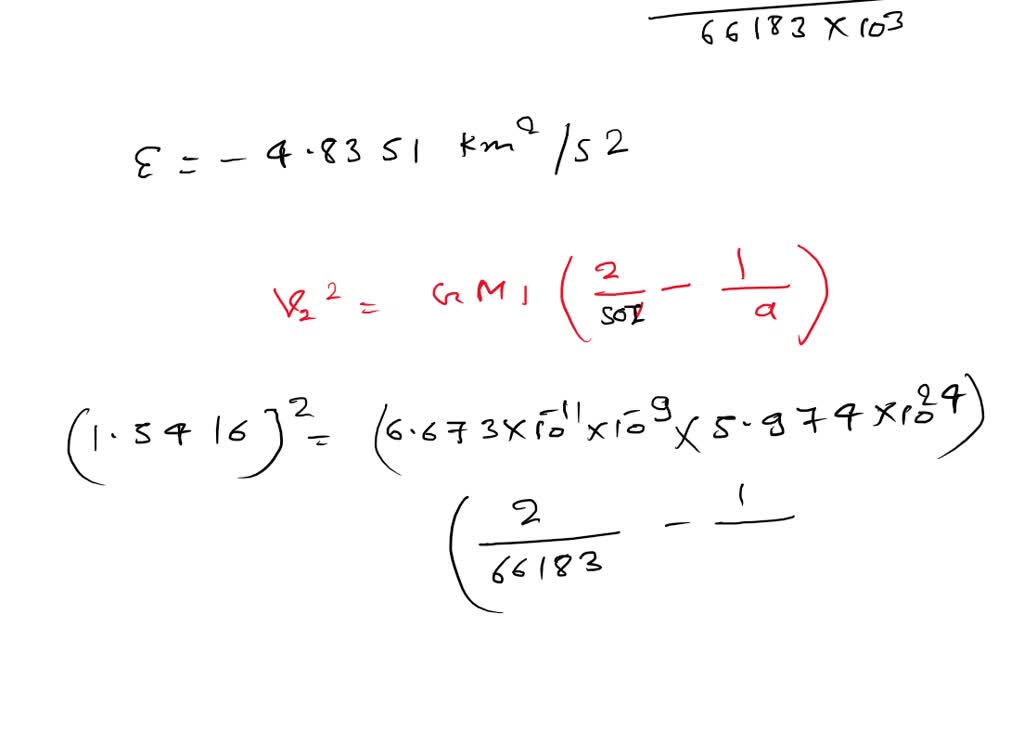 66183 × 10³
ε = - 4.8351 km²/s2
V₂² = GM1 (2/ - 1/a)
(1.5416)² = (6.673×10⁻¹¹×10⁻⁹×5.974×10²⁴)
(2/66183 - 1/